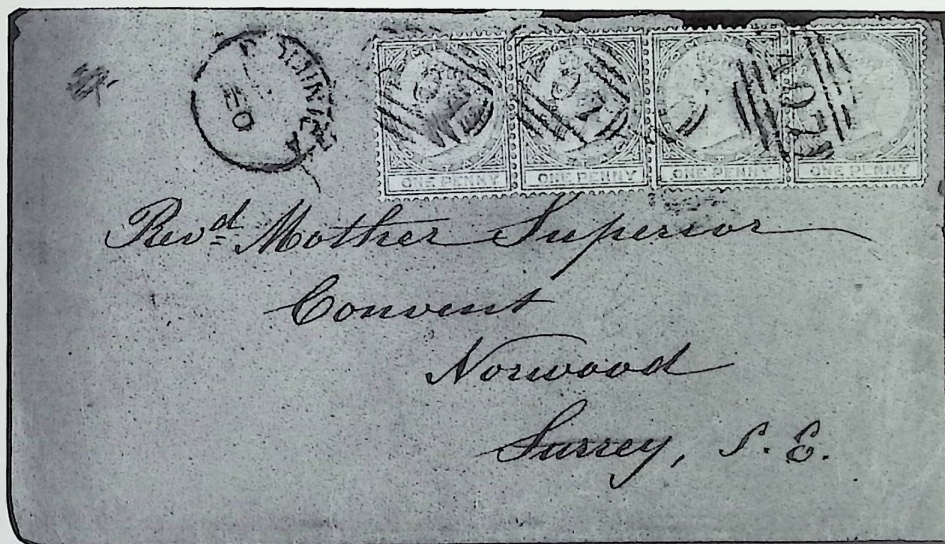 DOMINICA
A07
A07
A07
ONE PENNY
ONE PENNY
ONE PENNY
ONE PENNY
Rev^d Mother Superior
Convent
Norwood
Surrey, S. E.